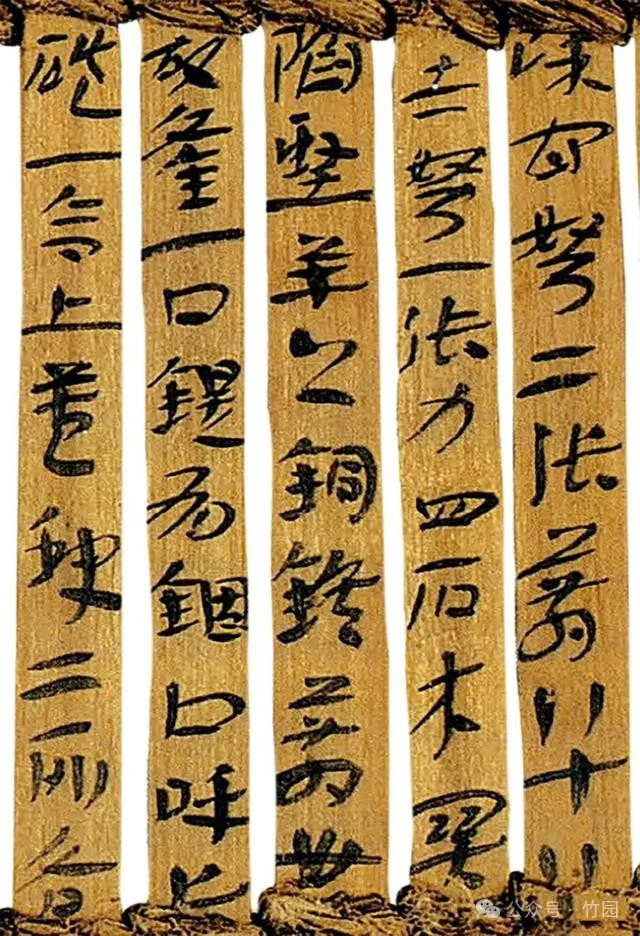 餘官弩二張箭八十八
赤弩一張力四石木關
陷堅羊頭銅鍭箭卅
故釜一口鍉有錮口呼長
磑一合上蓋缺二所各
公众号·竹园